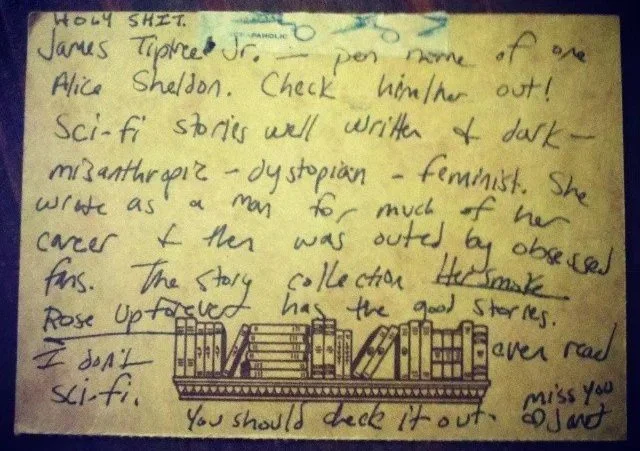 HOLY SHIT.
PAHOLIC
James Tiptree Jr. — pen name of one
Alice Sheldon. Check him/her out!
Sci-fi stories well written & dark —
misanthropic - dystopian - feminist. She
wrote as a man for much of her
career & then was outed by obsessed
fans. The story collection Her Smoke
Rose Up Forever has the good stories.
I don't even read
sci-fi.
You should check it out.
miss you
Janet